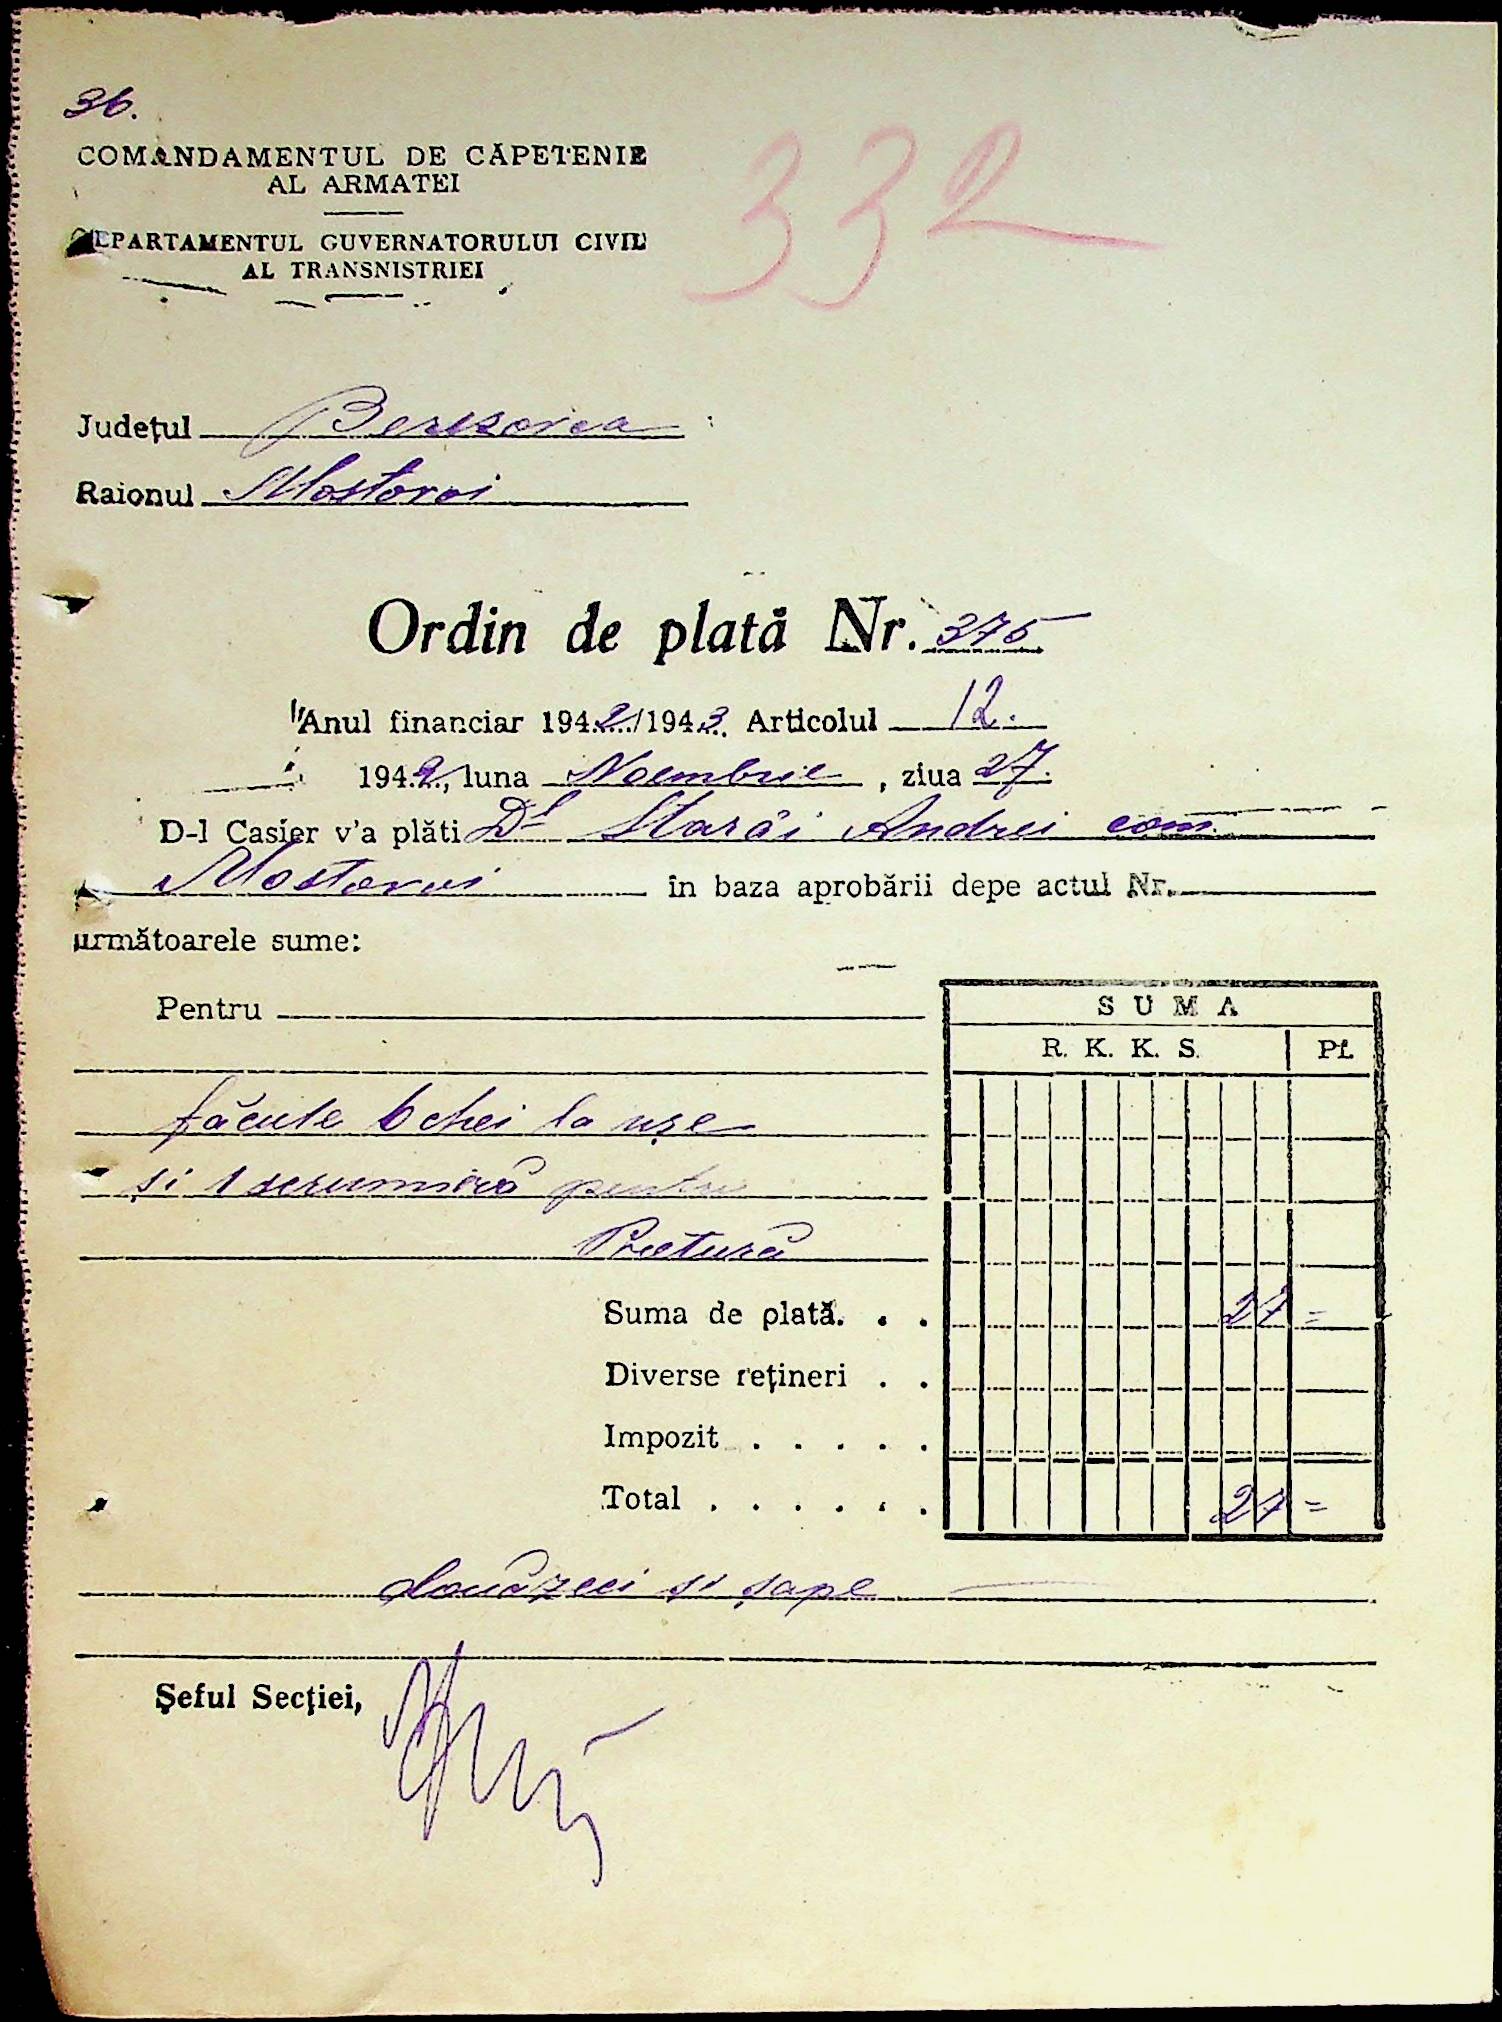 36.
332
COMANDAMENTUL DE CĂPETENIE
AL ARMATEI
DEPARTAMENTUL GUVERNATORULUI CIVIL
AL TRANSNISTRIEI
Județul Beresovca
Raionul Mostovoi
Ordin de plată Nr. 375
Anul financiar 1942/1943 Articolul 12.
1942, luna Noembrie, ziua 27.
D-l Casier v'a plăti Dl Andrei com.
Mostovoi în baza aprobării depe actul Nr.
următoarele sume:
Pentru
SUMA
R. K. K. S. Pf.
făcute 6 chei la uşe
şi 1 scrumieră pentru
Pretură
Suma de plată. . . 27 =
Diverse rețineri . .
Impozit . . . . .
Total . . . . . . 27 =
douăzeci şi şapte
Şeful Secției,